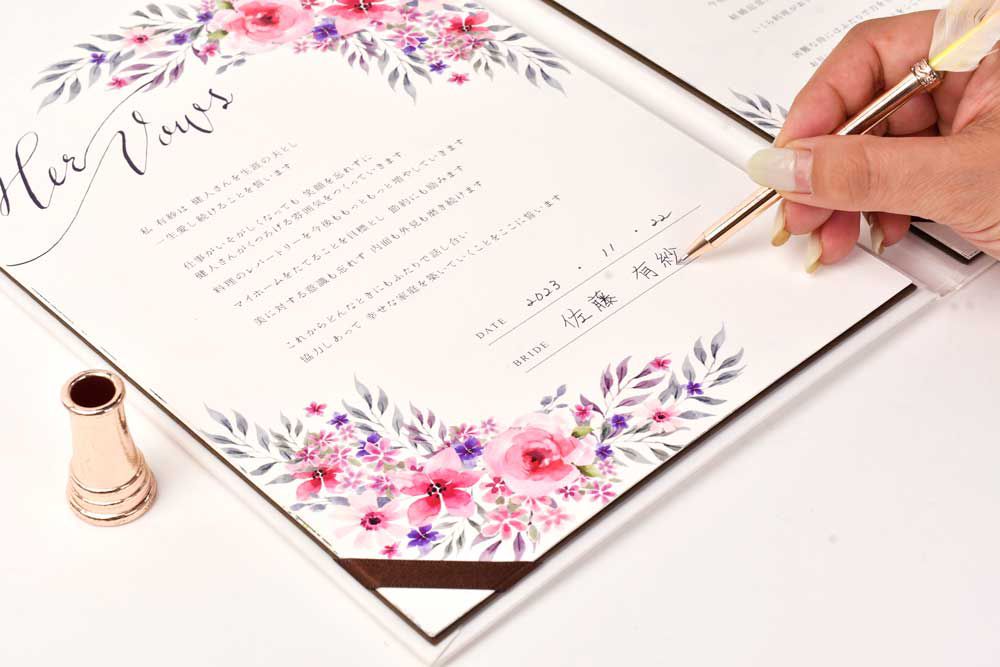 Her Vows
私 有紗は 健人さんを生涯の夫とし
一生愛し続けることを誓います
仕事がいそがしくなっても 笑顔を忘れずに
健人さんがくつろげる雰囲気をつくっていきます
料理のレパートリーを今後ももっともっと増やしていきます
マイホームをたてることを目標とし 節約にも励みます
美に対する意識も忘れず 内面も外見も磨き続けます
これからどんなときにもふたりで話し合い
協力しあって 幸せな家庭を築いていくことをここに誓います
DATE 2023 . 11 . 22
BRIDE 佐藤 有紗